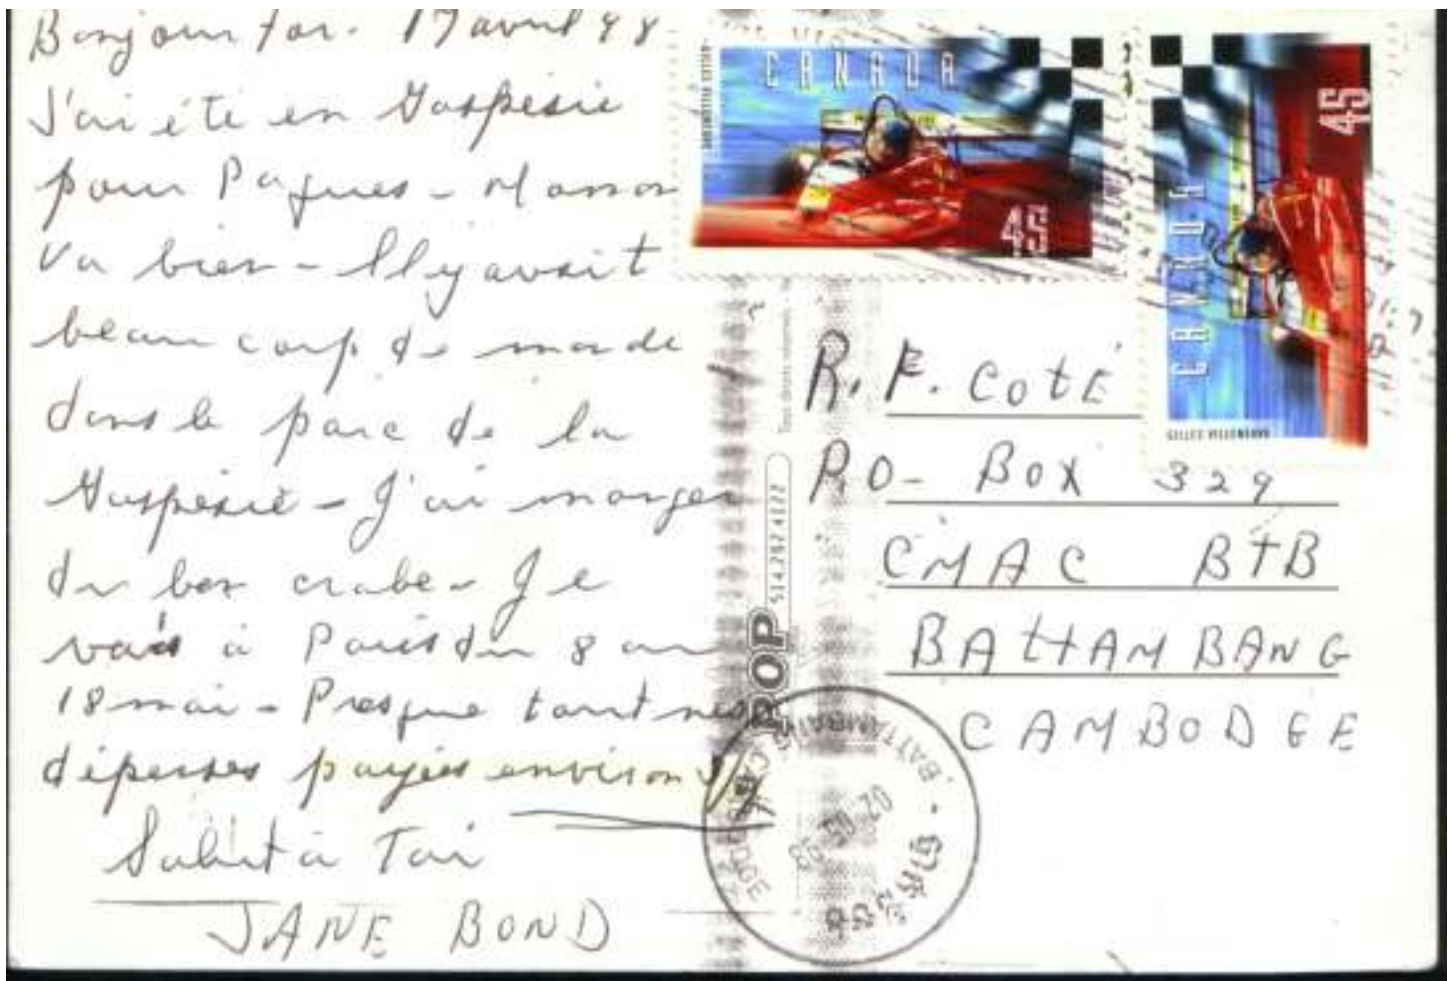 Bonjour Toi. 17 avril 98
J'ai été en Gaspésie
pour Paques - Maman
va bien - Il y avait
beaucoup de monde
dans le parc de la
Gaspésie - J'ai manger
du bon crabe - Je
vais à Paris du 8 au
18 mai - Presque tout mes
dépenses payés environ
Salut à Toi
JANE BOND
CANADA
45
CANADA
45
GILLES VILLENEUVE
R. F. COTÉ
P.O- BOX 329
CMAC BTB
BATTAMBANG
CAMBODGE
POP
514.287.4122
BATTAMBANG
CAMBODGE
02-05-98